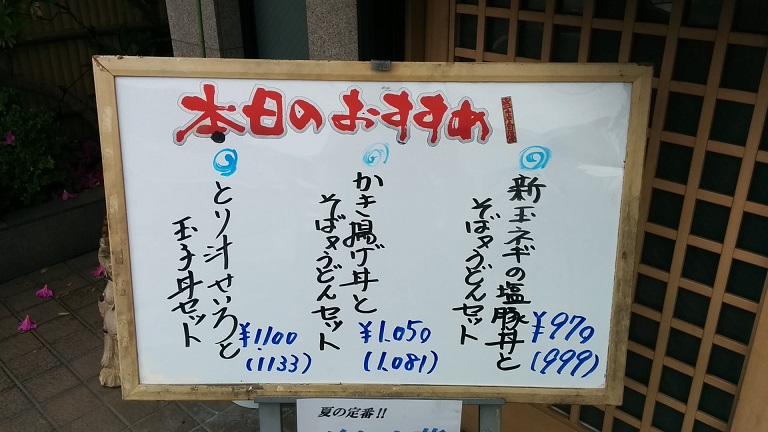 本日のおすすめ
新玉ネギの塩豚丼と
そば又うどんセット
¥970
(999)
かき揚げ丼と
そば又うどんセット
¥1.050
(1.081)
とり汁せいろと
玉子丼セット
¥1.100
(1133)
夏の定番!!